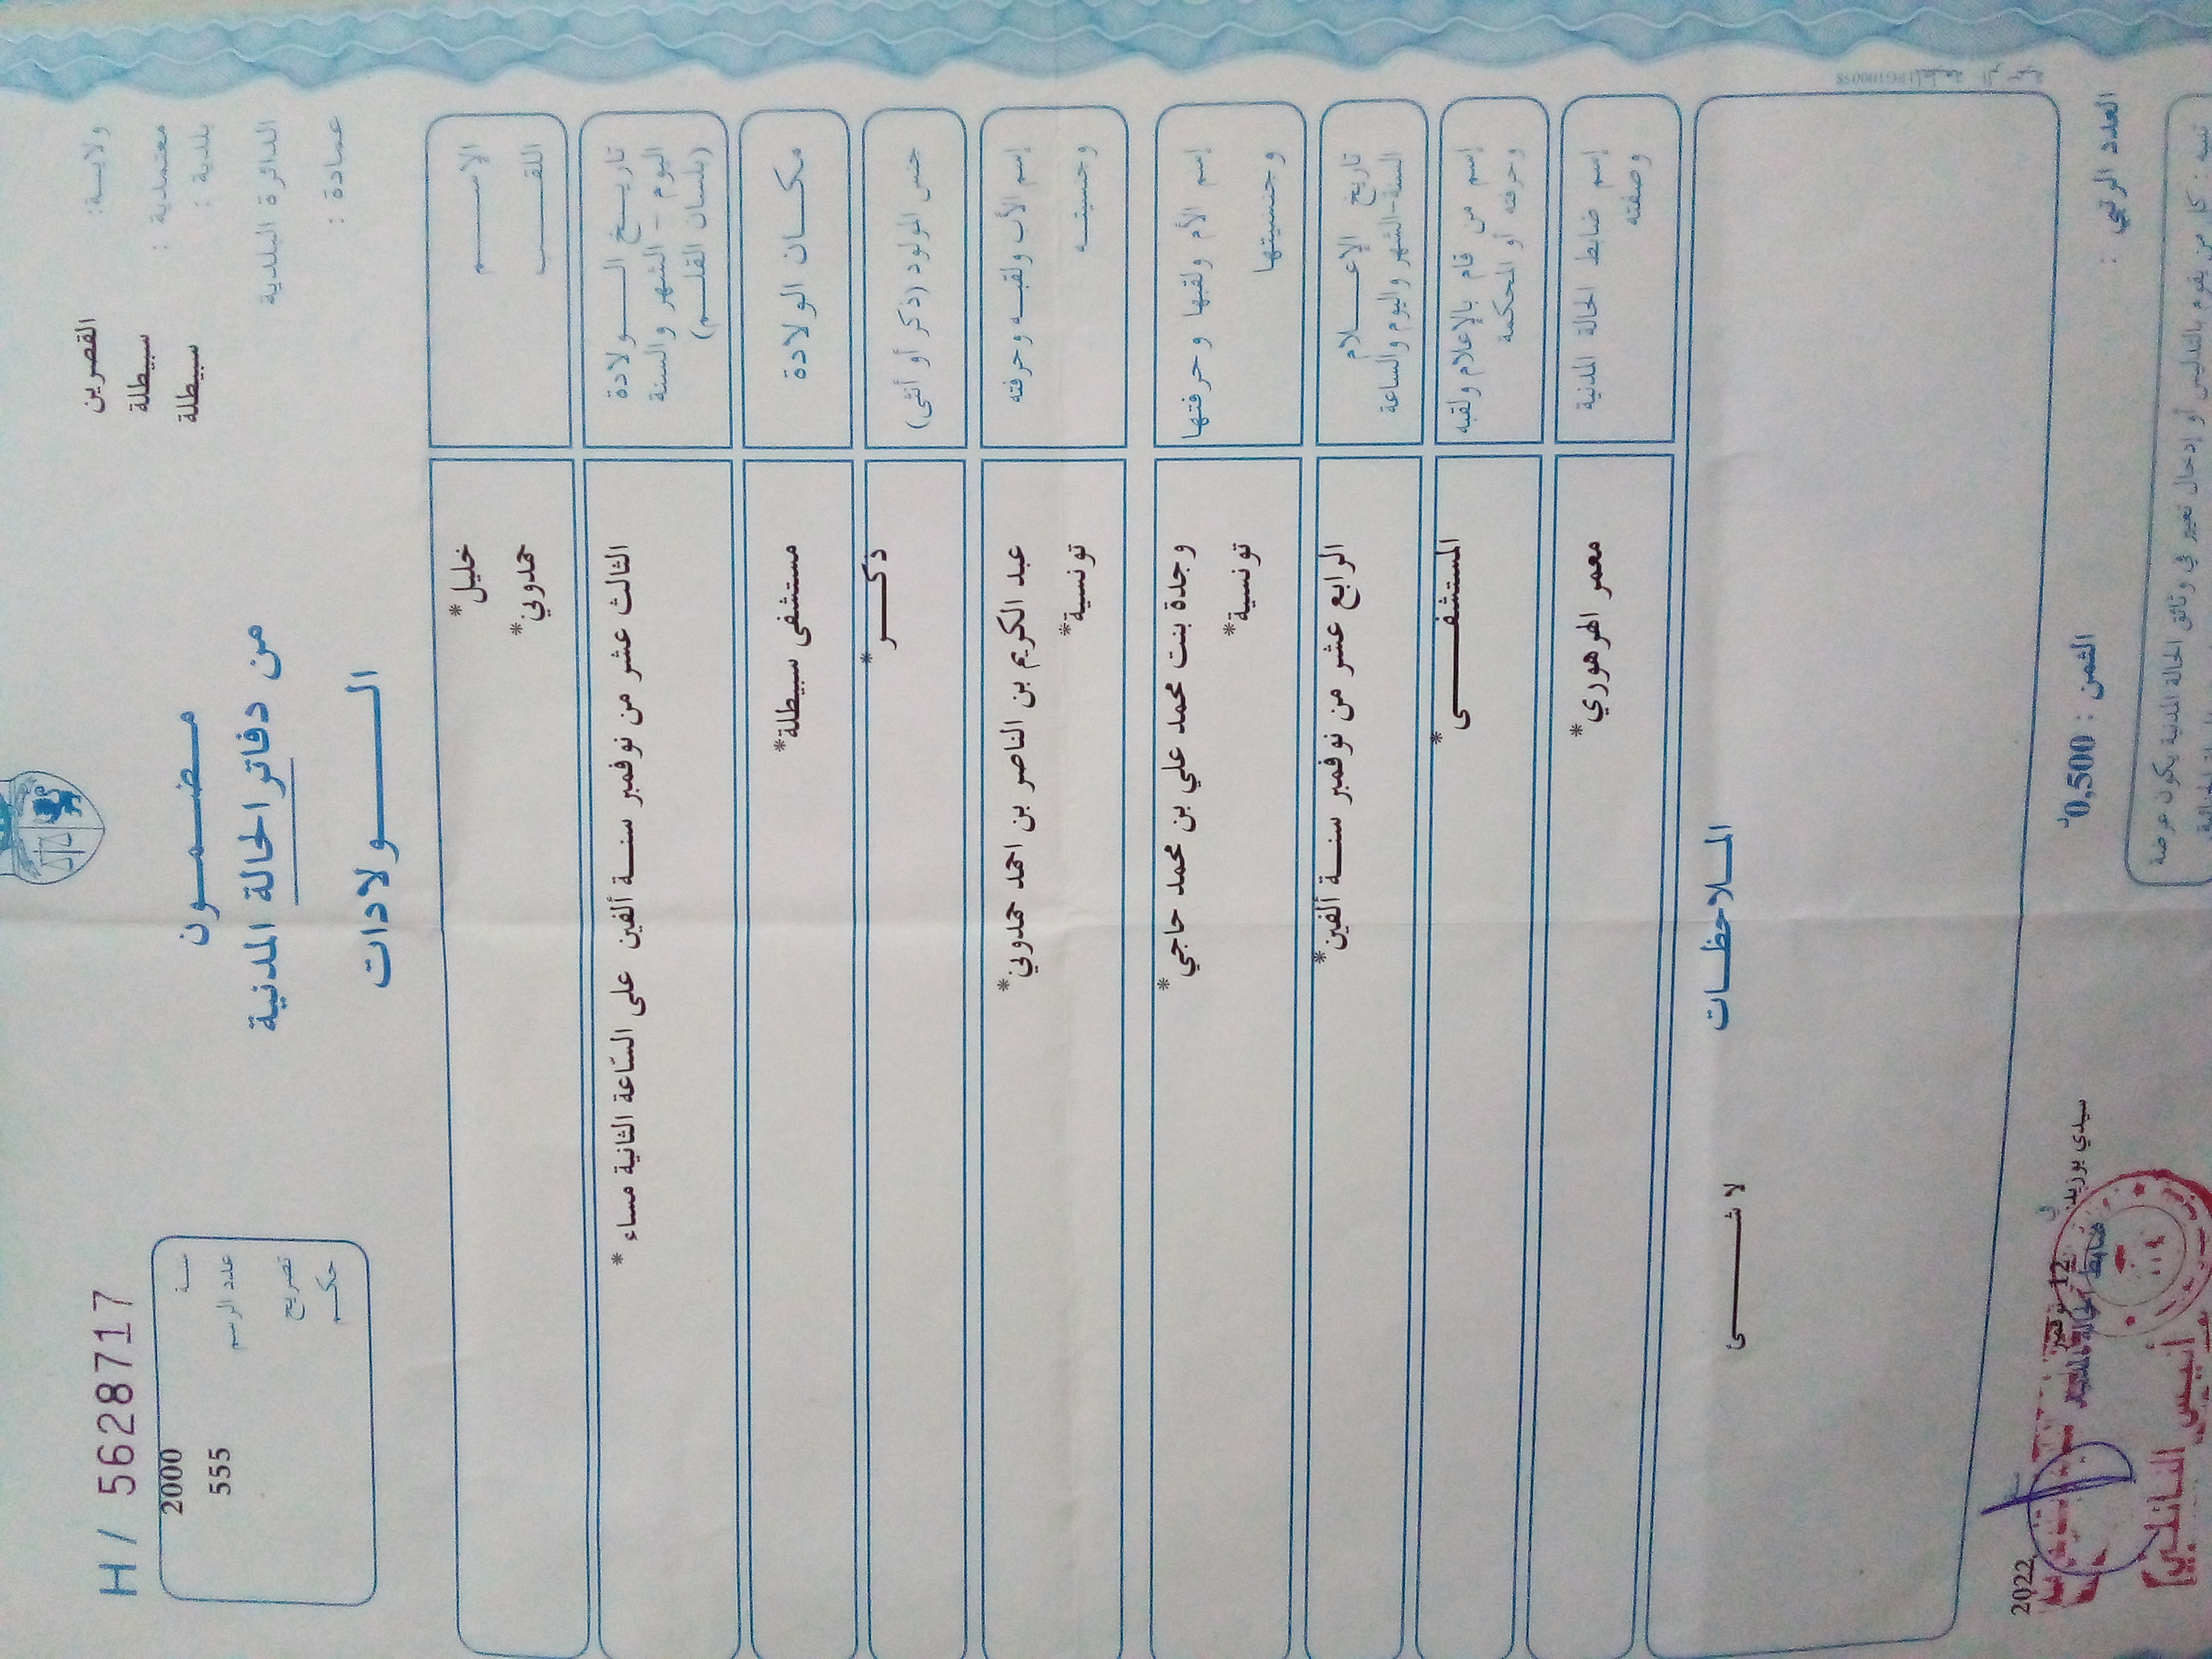 ولايــة: القصرين
معتمدية : سبيطلة
بلدية : سبيطلة
الدائرة البلدية
عمادة :
H / 5628717
سنــة 2000
عدد الرسم 555
تصريح
حكــم
مـضـمــون
من دفاتر الحالة المدنية
الــولادات
الإســــم خليل*
اللقــــب حمدوني*
تاريــخ الــــولادة
اليوم - الشهر والسنة
(بلسان القلــم)
الثالث عشر من نوفمبر سنــة ألفين على السّاعة الثانية مساء *
مكــان الولادة مستشفى سبيطلة*
جنس المولود (ذكر أو أنثى) ذكـــر*
إسم الأب ولقبــه وحرفته عبد الكريم بن الناصر بن احمد حمدوني*
وجنسيتــه تونسية*
إسم الأم ولقبها وحرفتها وجدة بنت محمد علي بن محمد حاجي*
وجنسيتها تونسية*
تاريخ الإعــــلام
السنة-الشهر واليوم والساعة
الرابع عشر من نوفمبر سنــة ألفين*
إسم من قام بالإعلام ولقبه
وحرفته أو المحكمة
المستشفـــى*
إسم ضابط الحالة المدنية
وصفته
معمر الهرهوري*
المــلاحظــات
لا شـــــى
العدد الرتبي :
الثمن : 0,500 د
سيدي بوزيد في 12 نوفمبر 2022
ضابط الحالة المدنية
تنبيه : كل من يقوم بالتدليس أو إدخال تغيير في وثائق الحالة المدنية يكون عرضة